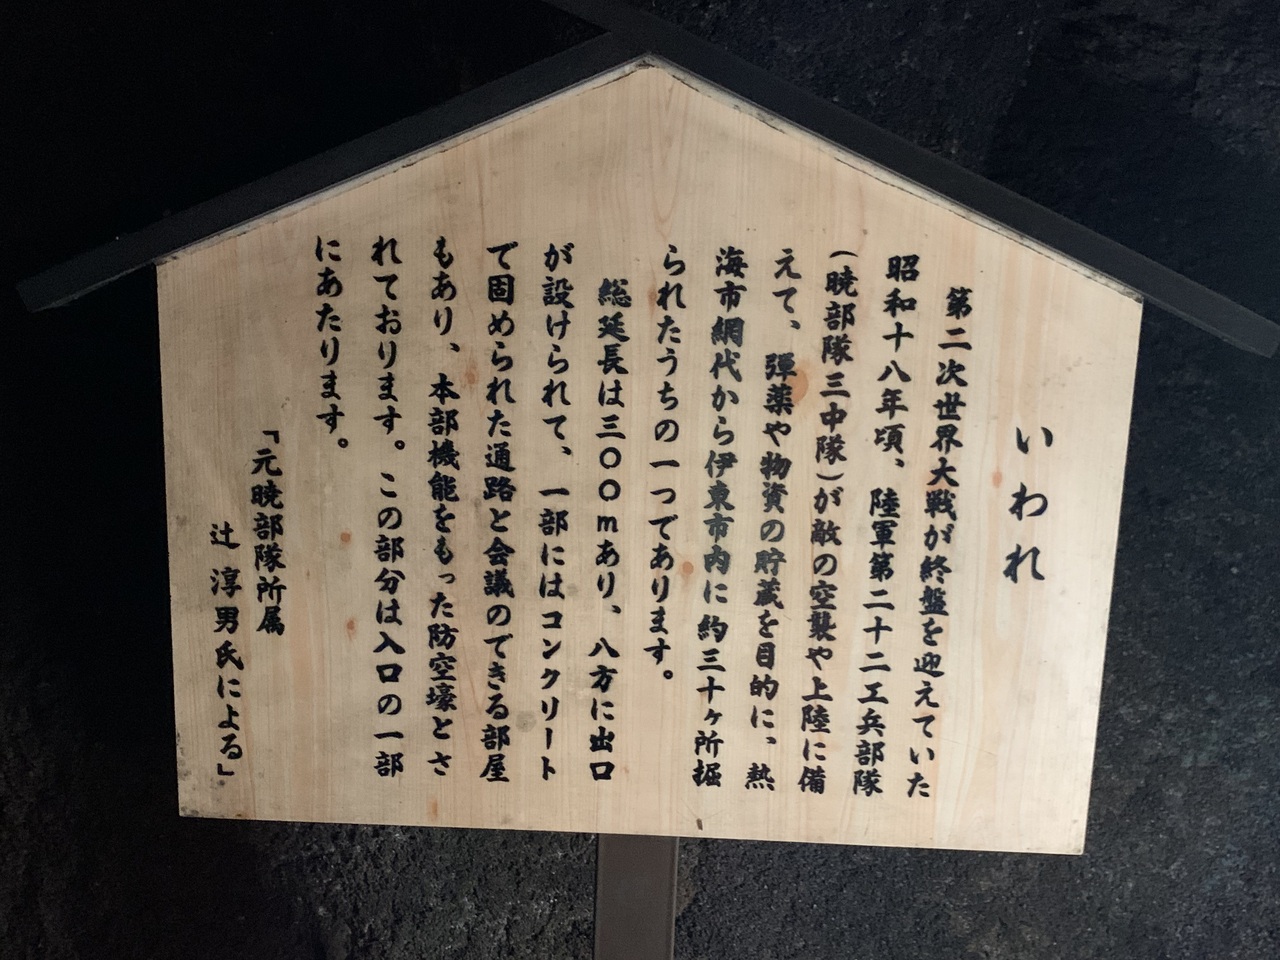 いわれ
第二次世界大戦が終盤を迎えていた
昭和十八年頃、陸軍第二十二工兵部隊
(暁部隊三中隊)が敵の空襲や上陸に備
えて、弾薬や物資の貯蔵を目的に、熱
海市網代から伊東市内に約三十ヶ所掘
られたうちの一つであります。
総延長は三〇〇mあり、八方に出口
が設けられて、一部にはコンクリート
で固められた通路と会議のできる部屋
もあり、本部機能をもった防空壕とさ
れております。この部分は入口の一部
にあたります。
「元暁部隊所属
辻淳男氏による」